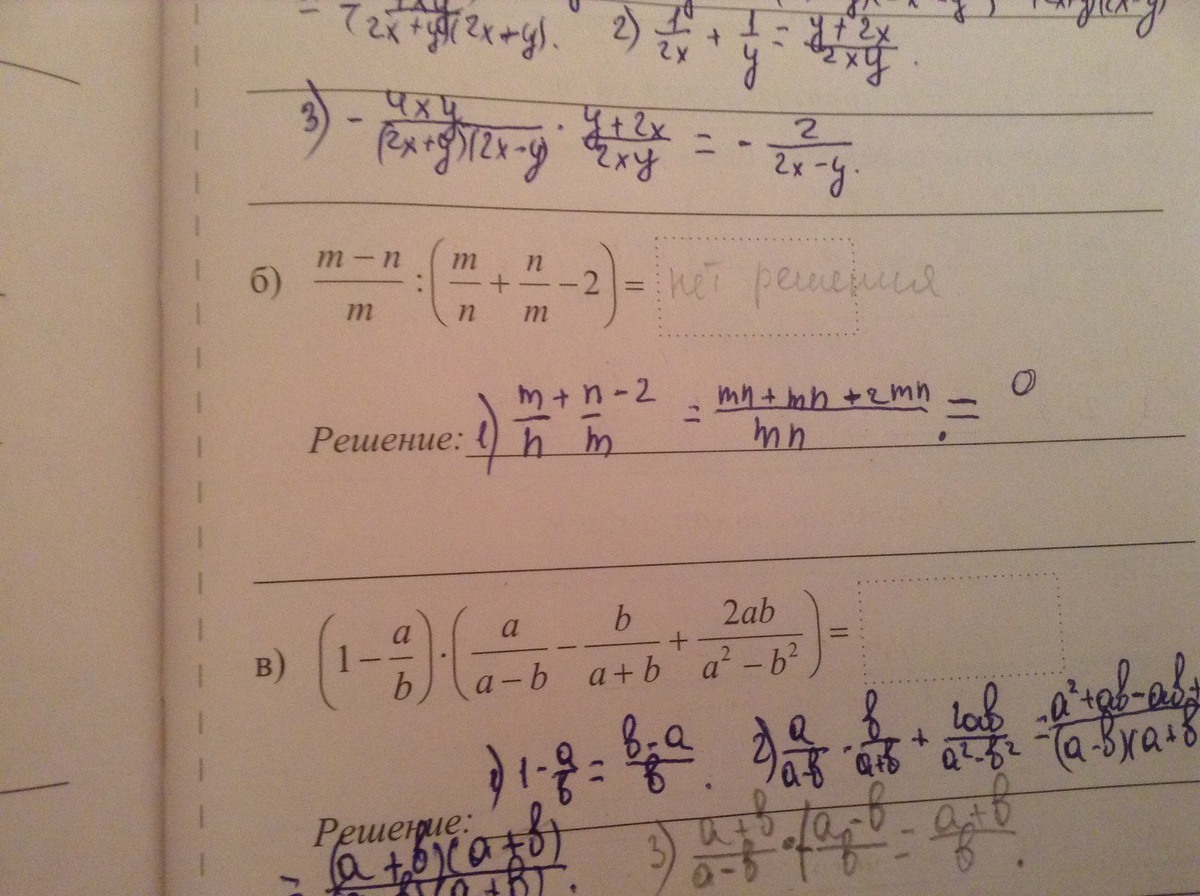 = (2x+y)(2x+y). 2) 1/2x + 1/y = y+2x/2xy.
3) - 4xy/(2x+y)(2x-y) · y+2x/2xy = - 2/2x-y.
б) m − n/m : (m/n + n/m − 2) = нет решения
Решение: 1) m/n + n/m - 2 = mn+mn+2mn/mn. = 0
в) (1 − a/b) · (a/a − b − b/a + b + 2ab/a² − b²) =
1) 1 - a/в = в-a/в. 2) a/a-в - в/a+в + 2aв/a²-в² = a²+aв-aв+/(a-в)(a+в
Решение:
= (a+в)(a+в) 3) a+в/a-в · (- a-в/в = a+в/в.